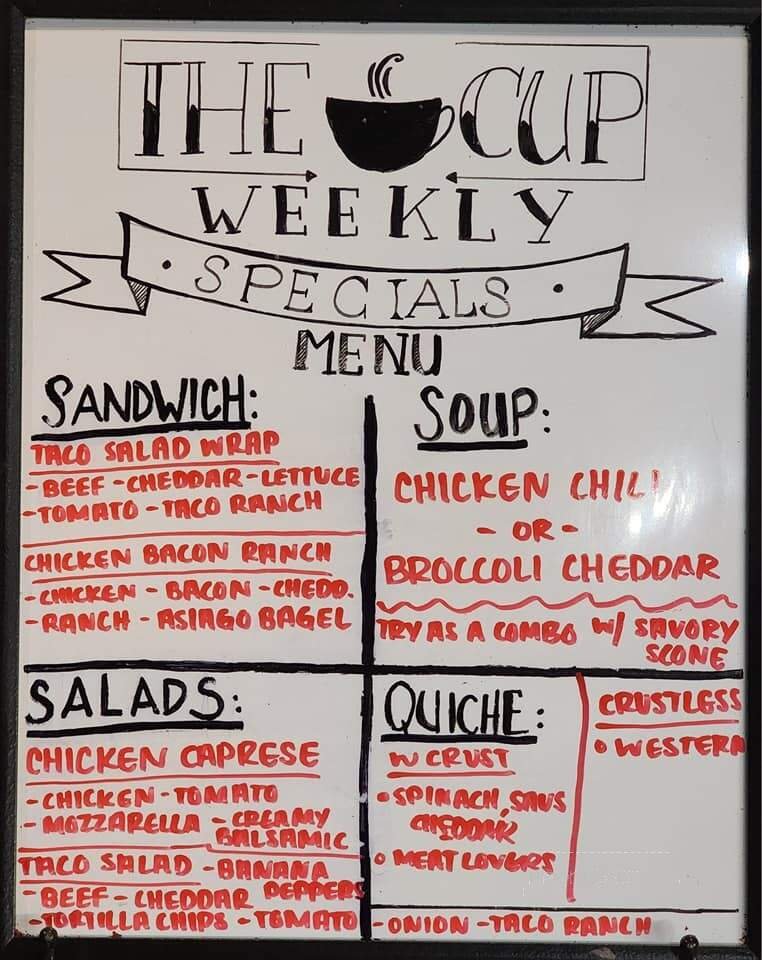 THE CUP
WEEKLY
• SPECIALS •
MENU
SANDWICH:
TACO SALAD WRAP
- BEEF - CHEDDAR - LETTUCE
- TOMATO - TACO RANCH
CHICKEN BACON RANCH
- CHICKEN - BACON - CHEDD.
- RANCH - ASIAGO BAGEL
SOUP:
CHICKEN CHILI
- OR -
BROCCOLI CHEDDAR
TRY AS A COMBO W/ SAVORY
SCONE
SALADS:
CHICKEN CAPRESE
- CHICKEN - TOMATO
- MOZZARELLA - CREAMY
BALSAMIC
TACO SALAD - BANANA
PEPPERS
- BEEF - CHEDDAR
- TORTILLA CHIPS - TOMATO
- ONION - TACO RANCH
QUICHE:
W CRUST
• SPINACH, SAUS
CHEDDAR
• MEAT LOVERS
CRUSTLESS
• WESTERN